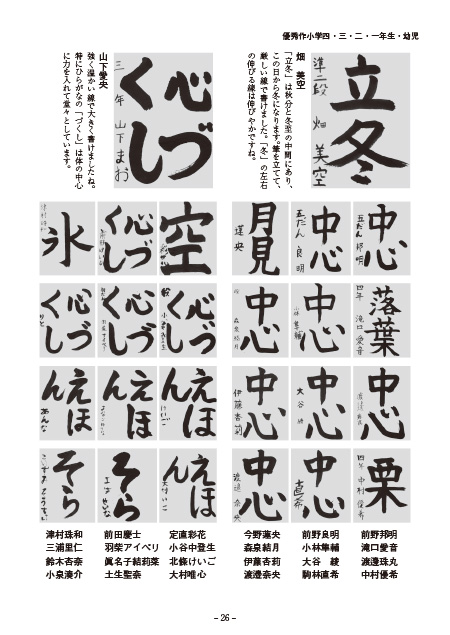 優秀作小学四・三・二・一年生・幼児
畑　美空
「立冬」は秋分と冬至の中間にあり、
この日から冬になります。筆を立てて、
厳しい線で書けました。「冬」の左右
の伸びる線は伸びやかですね。
立冬
準二段　畑　美空
山下愛央
強く温かい線で大きく書けましたね。
特にひらがなの「づくし」は体の中心
に力を入れて堂々としています。
心づくし
三年　山下まお
中心
五だん　邦明
中心
五だん　良明
月見
蓮央
空
心づくし
氷
落葉
四年　滝口愛音
中心
小林隼輔
中心
森泉結月
心づくし
心づくし
心づくし
中心
中心
大谷　綾
中心
伊藤杏莉
えほん
けいご
えほん
えほん
あんな
栗
四年　中村優希
中心
直希
中心
渡邉奈央
えほん
そら
そら
前野邦明
滝口愛音
渡邉珠丸
中村優希
前野良明
小林隼輔
大谷　綾
駒林直希
今野蓮央
森泉結月
伊藤杏莉
渡邉奈央
定直彩花
小谷中登生
北條けいご
大村唯心
前田慶士
羽柴アイベリ
眞名子結莉葉
土生聖奈
津村珠和
三浦里仁
鈴木杏奈
小泉湊介
– 26 –